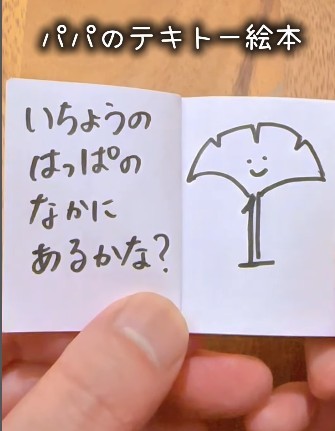 パパのテキトー絵本
いちょうの
はっぱの
なかに
あるかな?